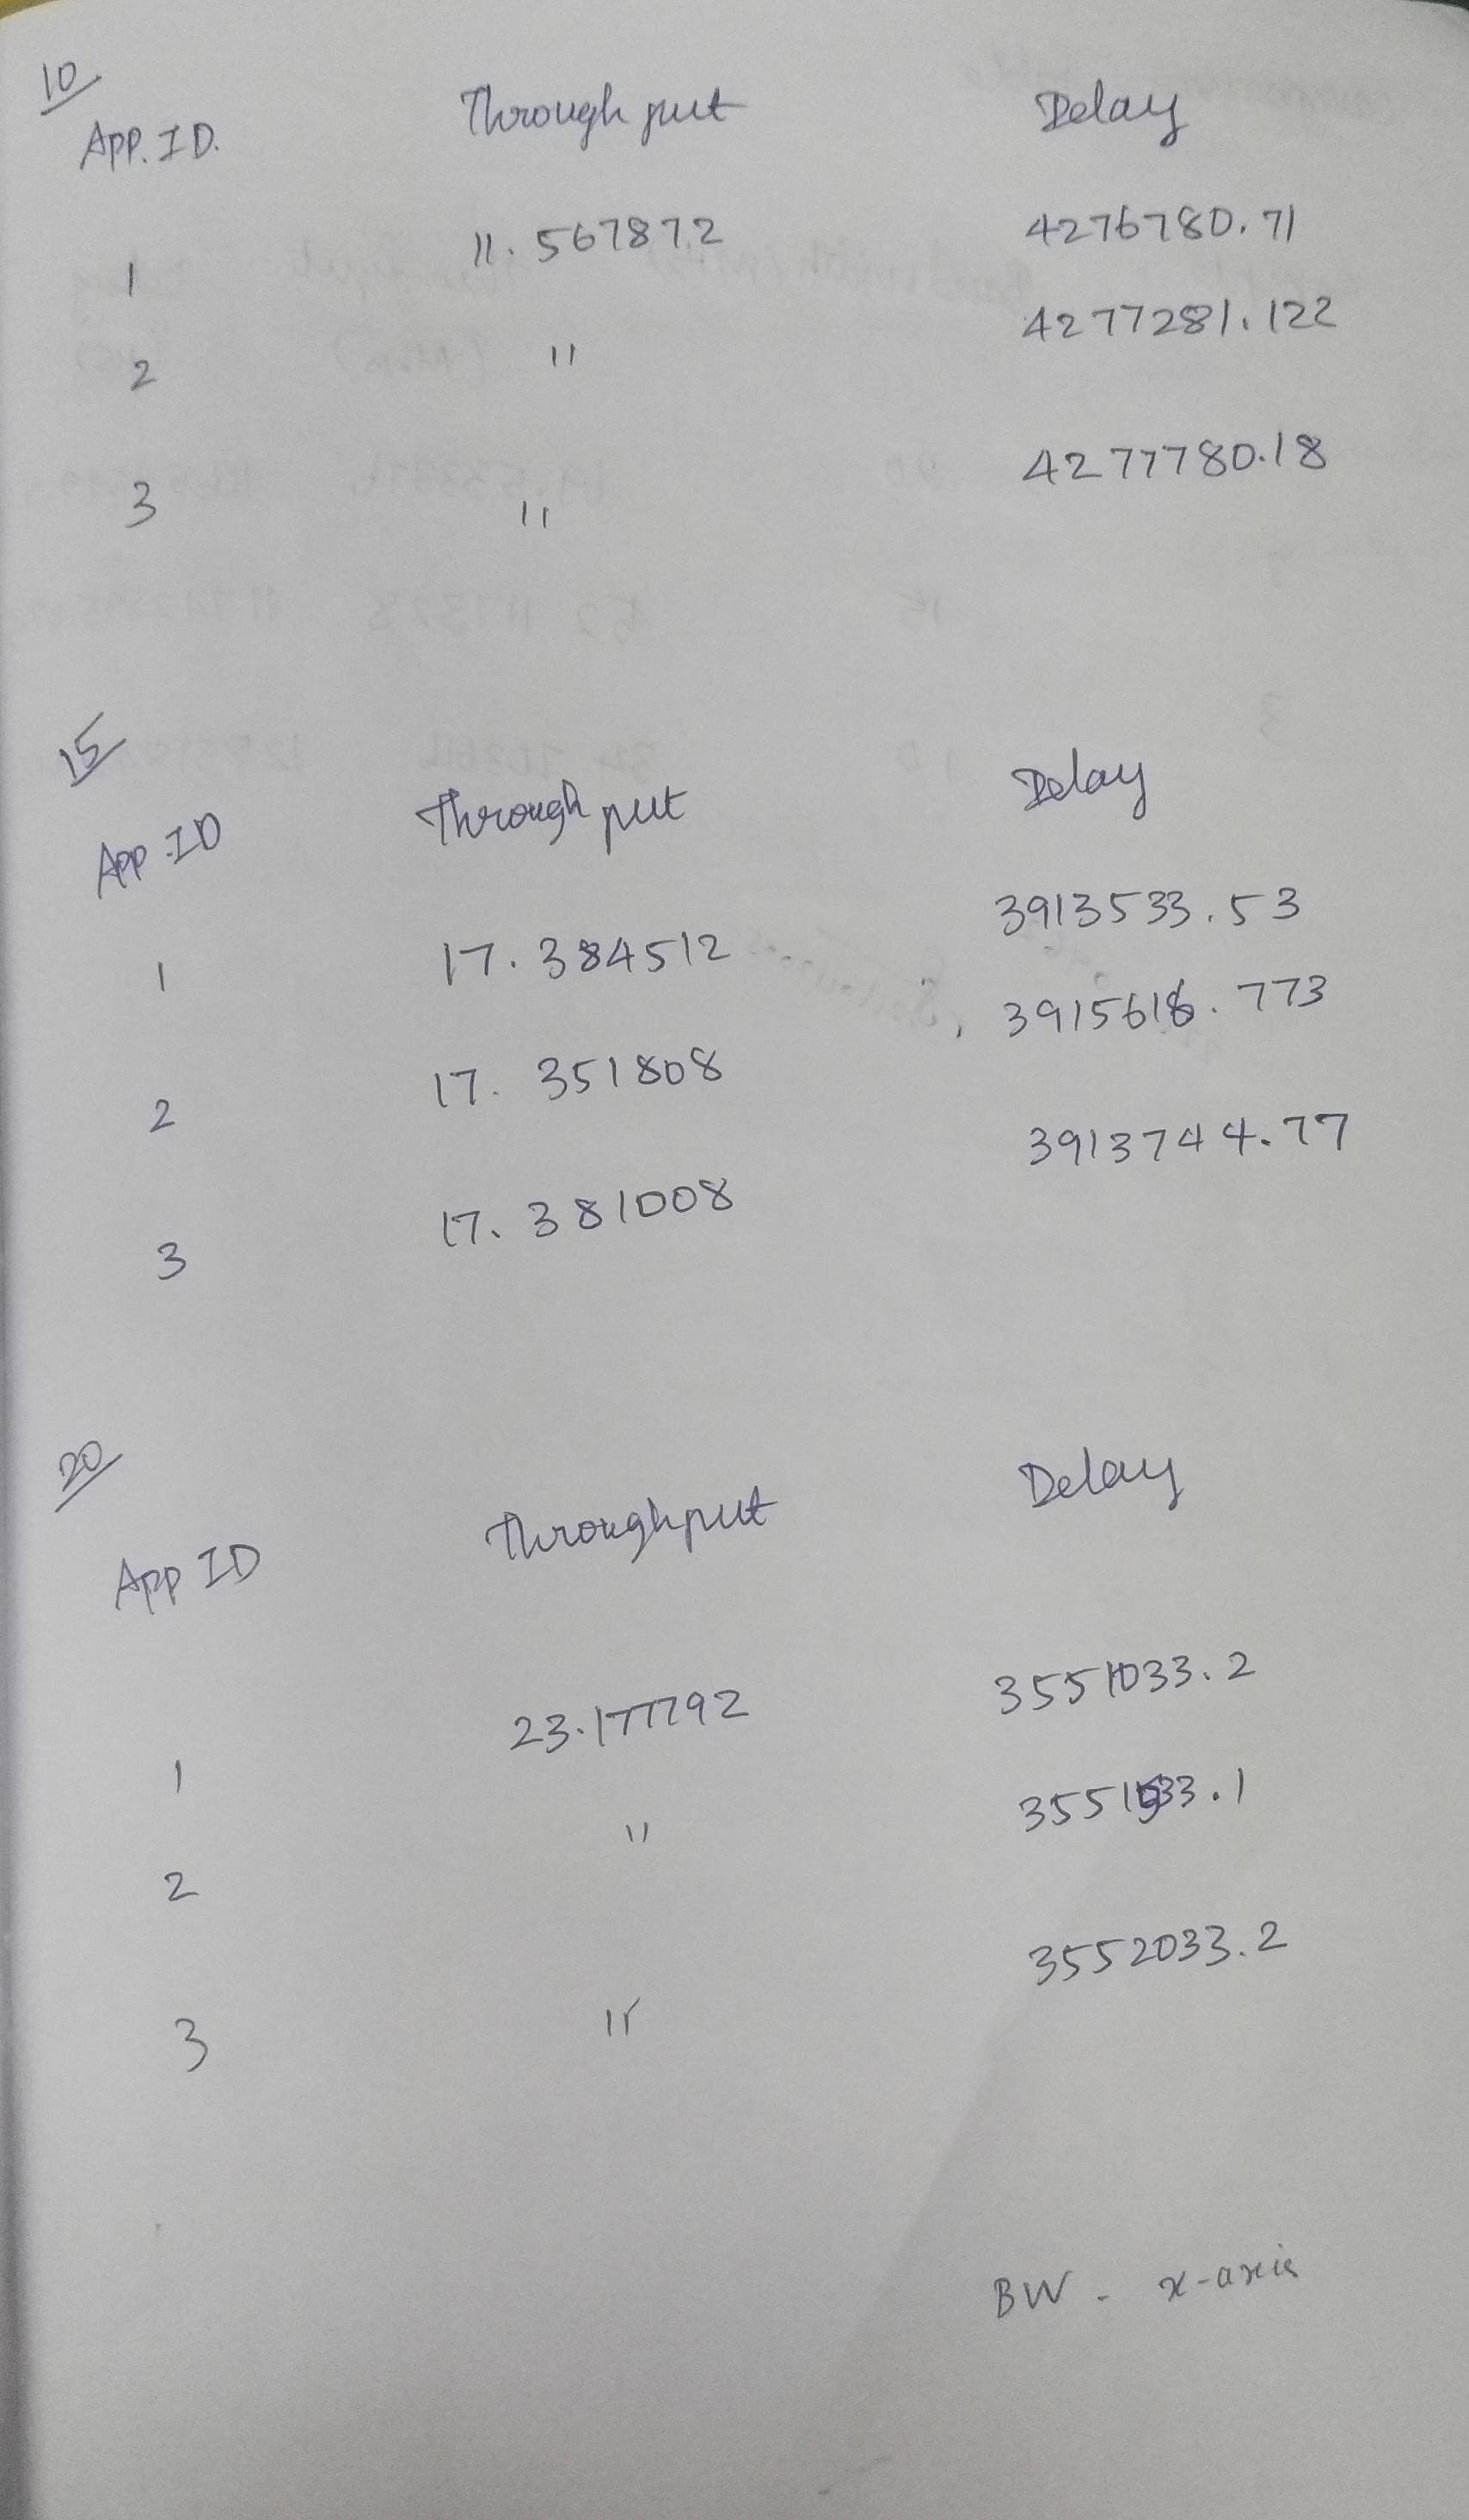 10
APP. ID. Throughput Delay
1 11.567872 4276780.71
2 " 4277281.122
3 " 4277780.18
15
App ID Throughput Delay
1 17.384512 3913533.53
2 17.351808 3915618.773
3 17.381008 3913744.77
20
App ID Throughput Delay
1 23.177792 3551033.2
2 " 3551533.1
3 " 3552033.2
BW - x-axis